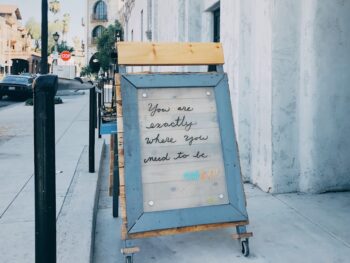 You are
exactly
where you
need to be.